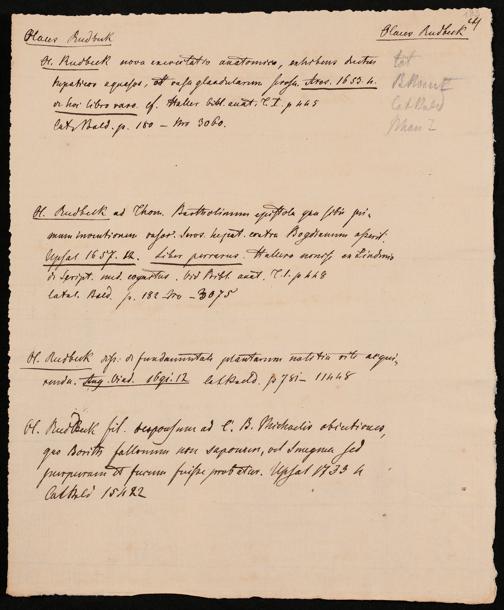 Olaus Rudbeck
Olaus Rudbeck
O. Rudbeck nova exercitatio anatomica, exhibens ductus
hepaticos aquosos, et vasa glandularum serosa. Aros. 1653. 4.
cf. Haller bibl. anat. T. I. p 445
Cat. Bald. p. 180 – Nro 3060.
O. Rudbeck ad Thom. Bartholinum epistola qua sibi pri-
mum inventionem vasor. seros. hepat. contra Bogdanum asserit.
Upsal 1657. 12. Liber perrarus. Hallero nonnisi ex Lindenio
de script. med. cognitus. Vid Bibl. anat. T. I. p 448
Catal. Bald. p. 182 Nro – 3075
O. Rudbeck diss. de fundamentali plantarum notitia rite acqui-
renda. Aug. Vind. 1691. 12 Cat Bald. p 781 – 11448
Ol. Rudbeck fil. responsum ad C. B. Michaelis obiectiones,
quo Borith fullonum non saponem, vel smegma sed
purpuram et fucum fuisse probatur. Upsal 1733 4
Cat Bald 15422